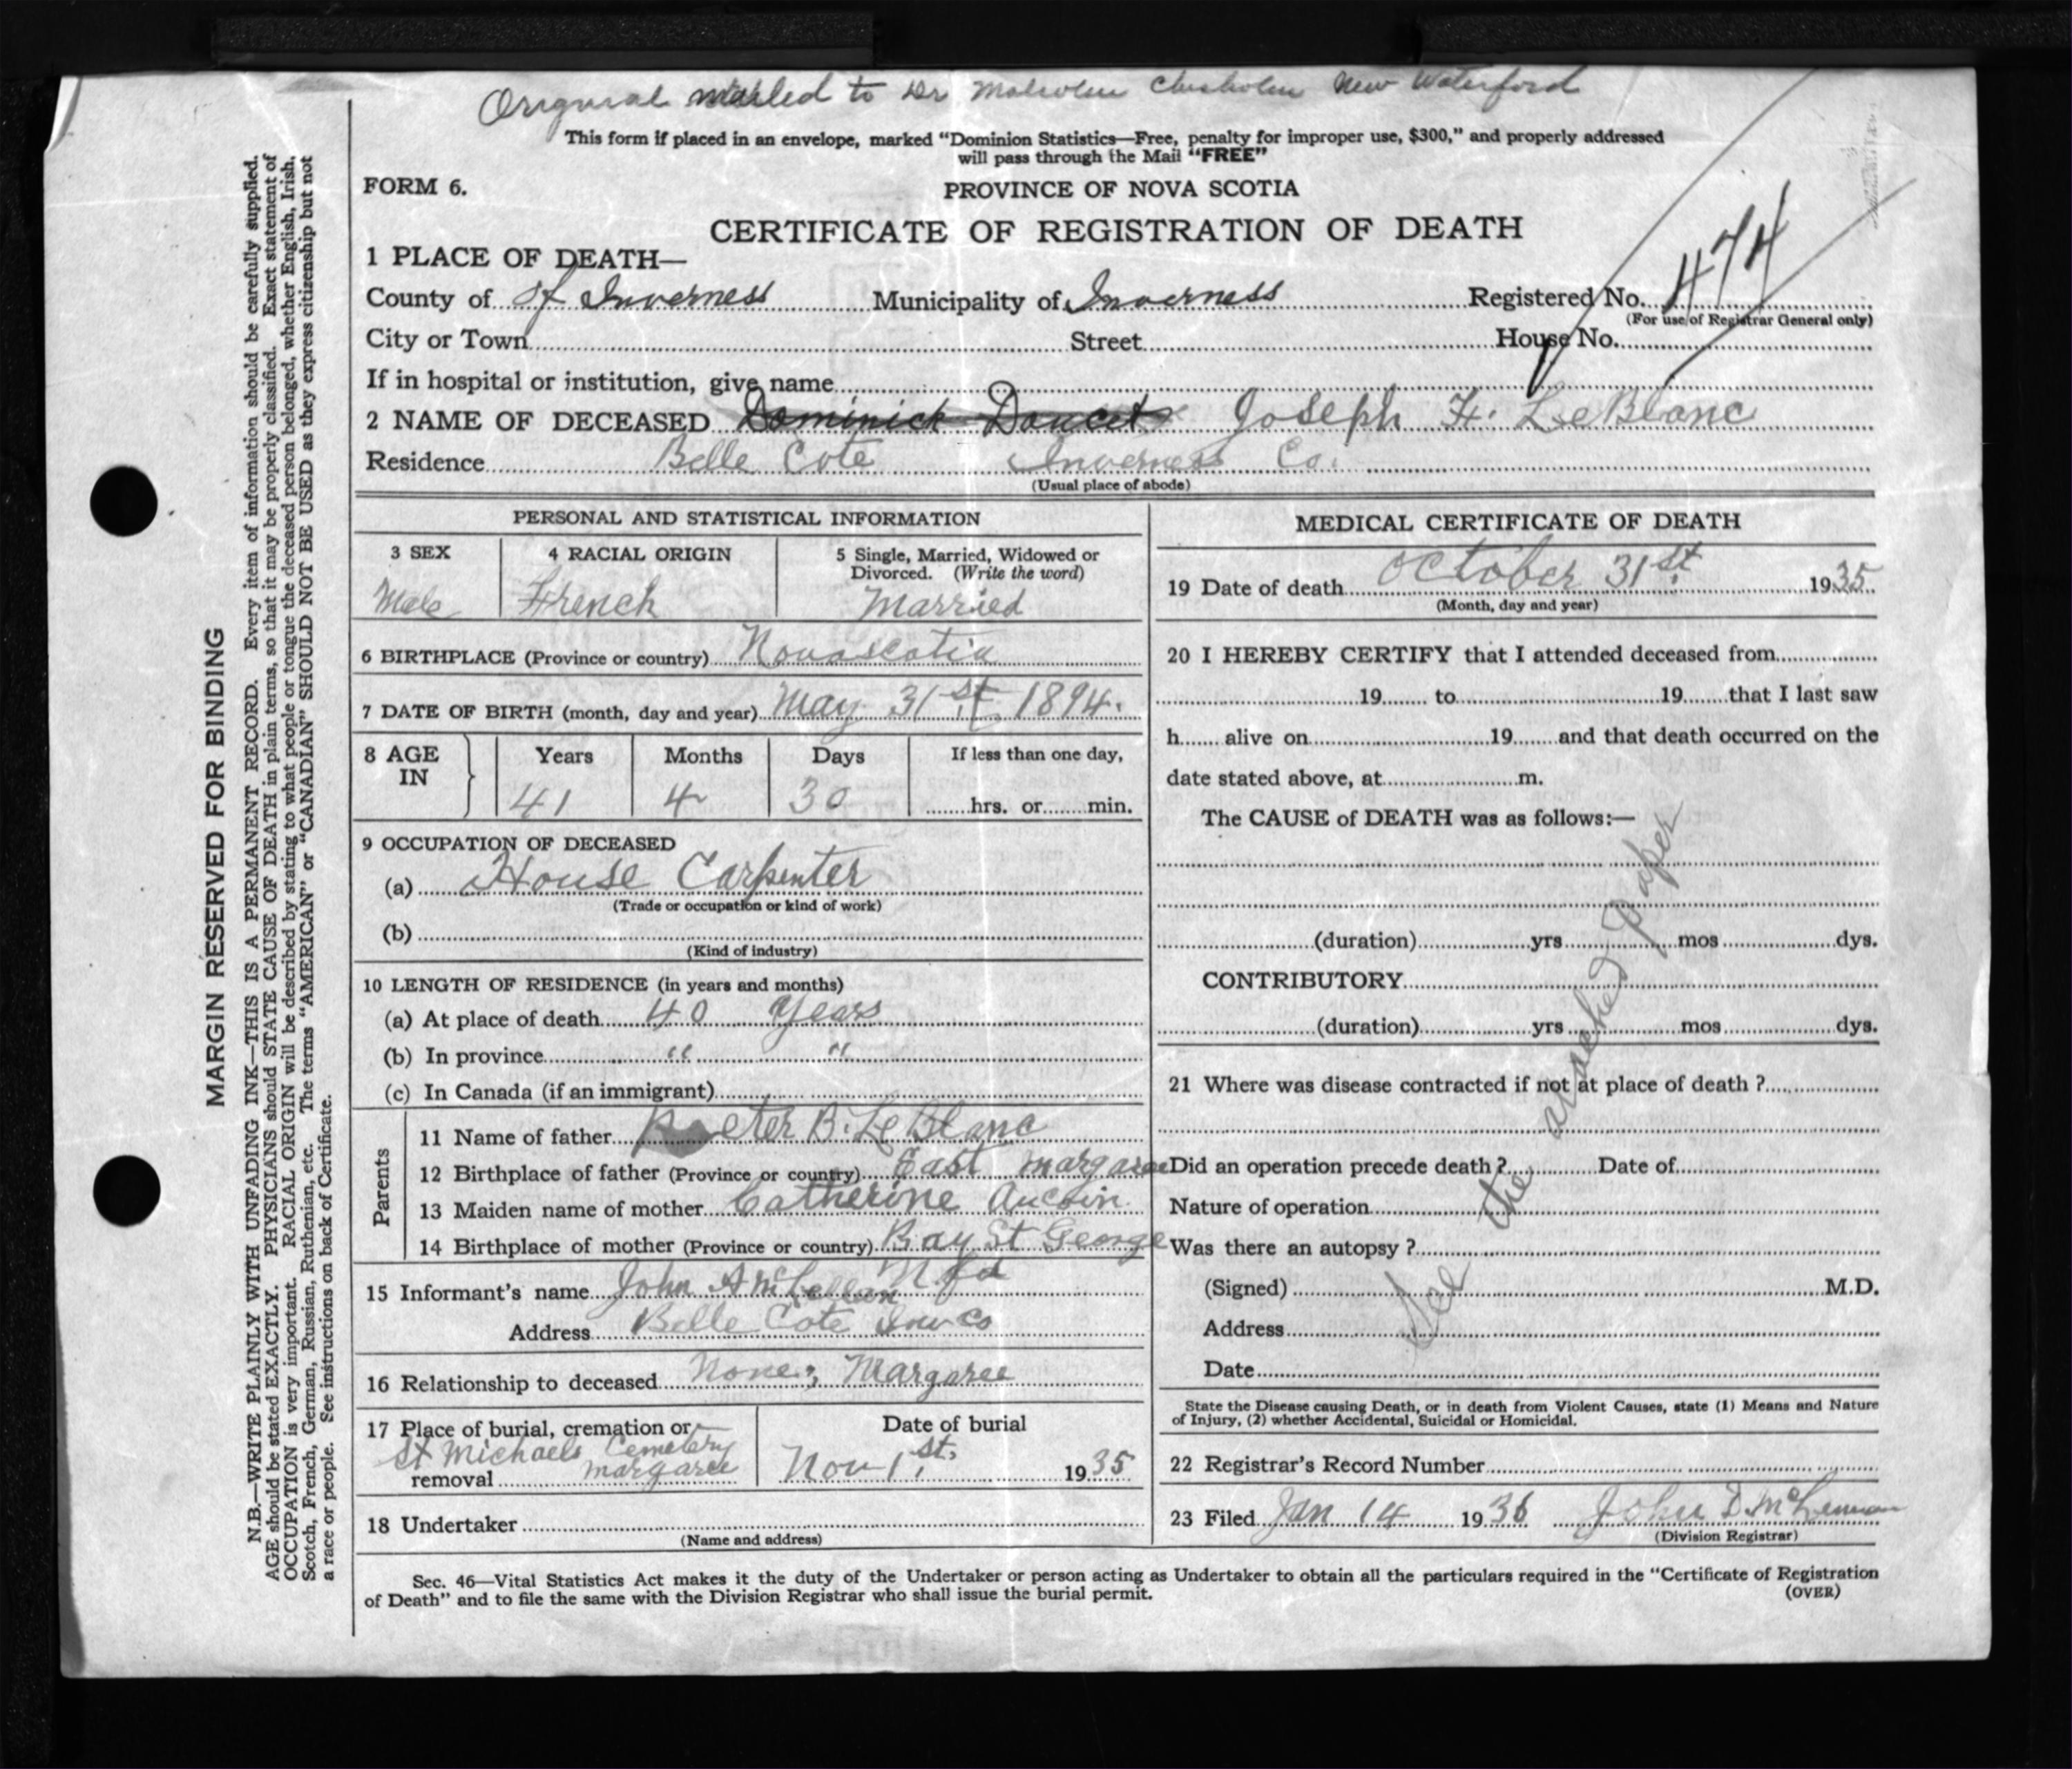 Original mailed to Dr Malcolm Chisholm New Waterford
This form if placed in an envelope, marked “Dominion Statistics—Free, penalty for improper use, $300,” and properly addressed
will pass through the Mail “FREE”
FORM 6.
PROVINCE OF NOVA SCOTIA
CERTIFICATE OF REGISTRATION OF DEATH
1 PLACE OF DEATH—
County of of Inverness Municipality of Inverness Registered No. 474
(For use of Registrar General only)
City or Town Street House No.
If in hospital or institution, give name
2 NAME OF DECEASED Dominick Doucet Joseph F. LeBlanc
Residence Belle Cote Inverness Co.
(Usual place of abode)
PERSONAL AND STATISTICAL INFORMATION
3 SEX 4 RACIAL ORIGIN 5 Single, Married, Widowed or
Divorced. (Write the word)
Male French Married
6 BIRTHPLACE (Province or country) Novascotia
7 DATE OF BIRTH (month, day and year) May 31st 1894.
8 AGE Years Months Days If less than one day,
IN
41 4 30 hrs. or min.
9 OCCUPATION OF DECEASED
(a) House Carpenter
(Trade or occupation or kind of work)
(b)
(Kind of industry)
10 LENGTH OF RESIDENCE (in years and months)
(a) At place of death 40 Years
(b) In province " "
(c) In Canada (if an immigrant)
Parents
11 Name of father Peter B. LeBlanc
12 Birthplace of father (Province or country) East Margaree
13 Maiden name of mother Catherine Aucoin
14 Birthplace of mother (Province or country) Bay St George
Nfd
15 Informant's name John A McLellan
Address Belle Cote Inv Co
16 Relationship to deceased None; Margaree
17 Place of burial, cremation or Date of burial
St Michaels Cemetery
removal Margaree Nov 1st. 1935
18 Undertaker
(Name and address)
MEDICAL CERTIFICATE OF DEATH
19 Date of death October 31st 1935
(Month, day and year)
20 I HEREBY CERTIFY that I attended deceased from
19 to 19 that I last saw
h alive on 19 and that death occurred on the
date stated above, at m.
The CAUSE of DEATH was as follows:—
(duration) yrs mos dys.
CONTRIBUTORY
(duration) yrs mos dys.
21 Where was disease contracted if not at place of death ?
Did an operation precede death ? Date of
Nature of operation
Was there an autopsy ?
(Signed) M.D.
Address
Date
See the attached Paper
State the Disease causing Death, or in death from Violent Causes, state (1) Means and Nature
of Injury, (2) whether Accidental, Suicidal or Homicidal.
22 Registrar's Record Number
23 Filed Jan 14 1936 John D. McLennan
(Division Registrar)
Sec. 46—Vital Statistics Act makes it the duty of the Undertaker or person acting as Undertaker to obtain all the particulars required in the “Certificate of Registration
of Death” and to file the same with the Division Registrar who shall issue the burial permit.
(OVER)
MARGIN RESERVED FOR BINDING
N.B.—WRITE PLAINLY WITH UNFADING INK—THIS IS A PERMANENT RECORD. Every item of information should be carefully supplied.
AGE should be stated EXACTLY. PHYSICIANS should STATE CAUSE OF DEATH in plain terms, so that it may be properly classified. Exact statement of
OCCUPATION is very important. RACIAL ORIGIN will be described by stating to what people or tongue the deceased person belonged, whether English, Irish,
Scotch, French, German, Russian, Ruthenian, etc. The terms “AMERICAN” or “CANADIAN” SHOULD NOT BE USED as they express citizenship but not
a race or people. See instructions on back of Certificate.